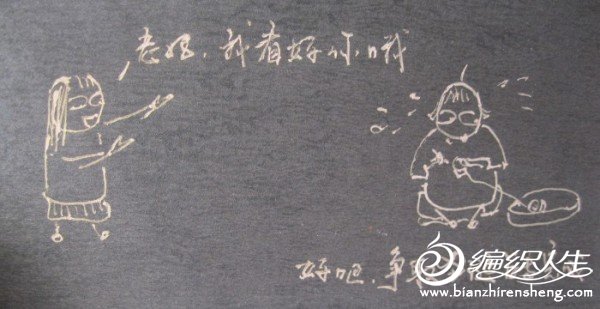 老妈，我看好你哦
好吧，争取
编织人生
www.bianzhirensheng.com